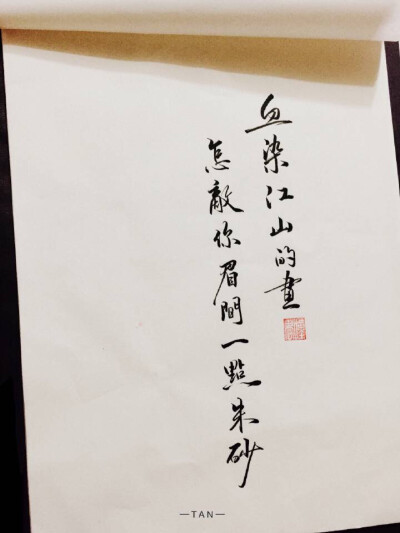 血染江山的畫
怎敵你眉間一點朱砂
—TAN—